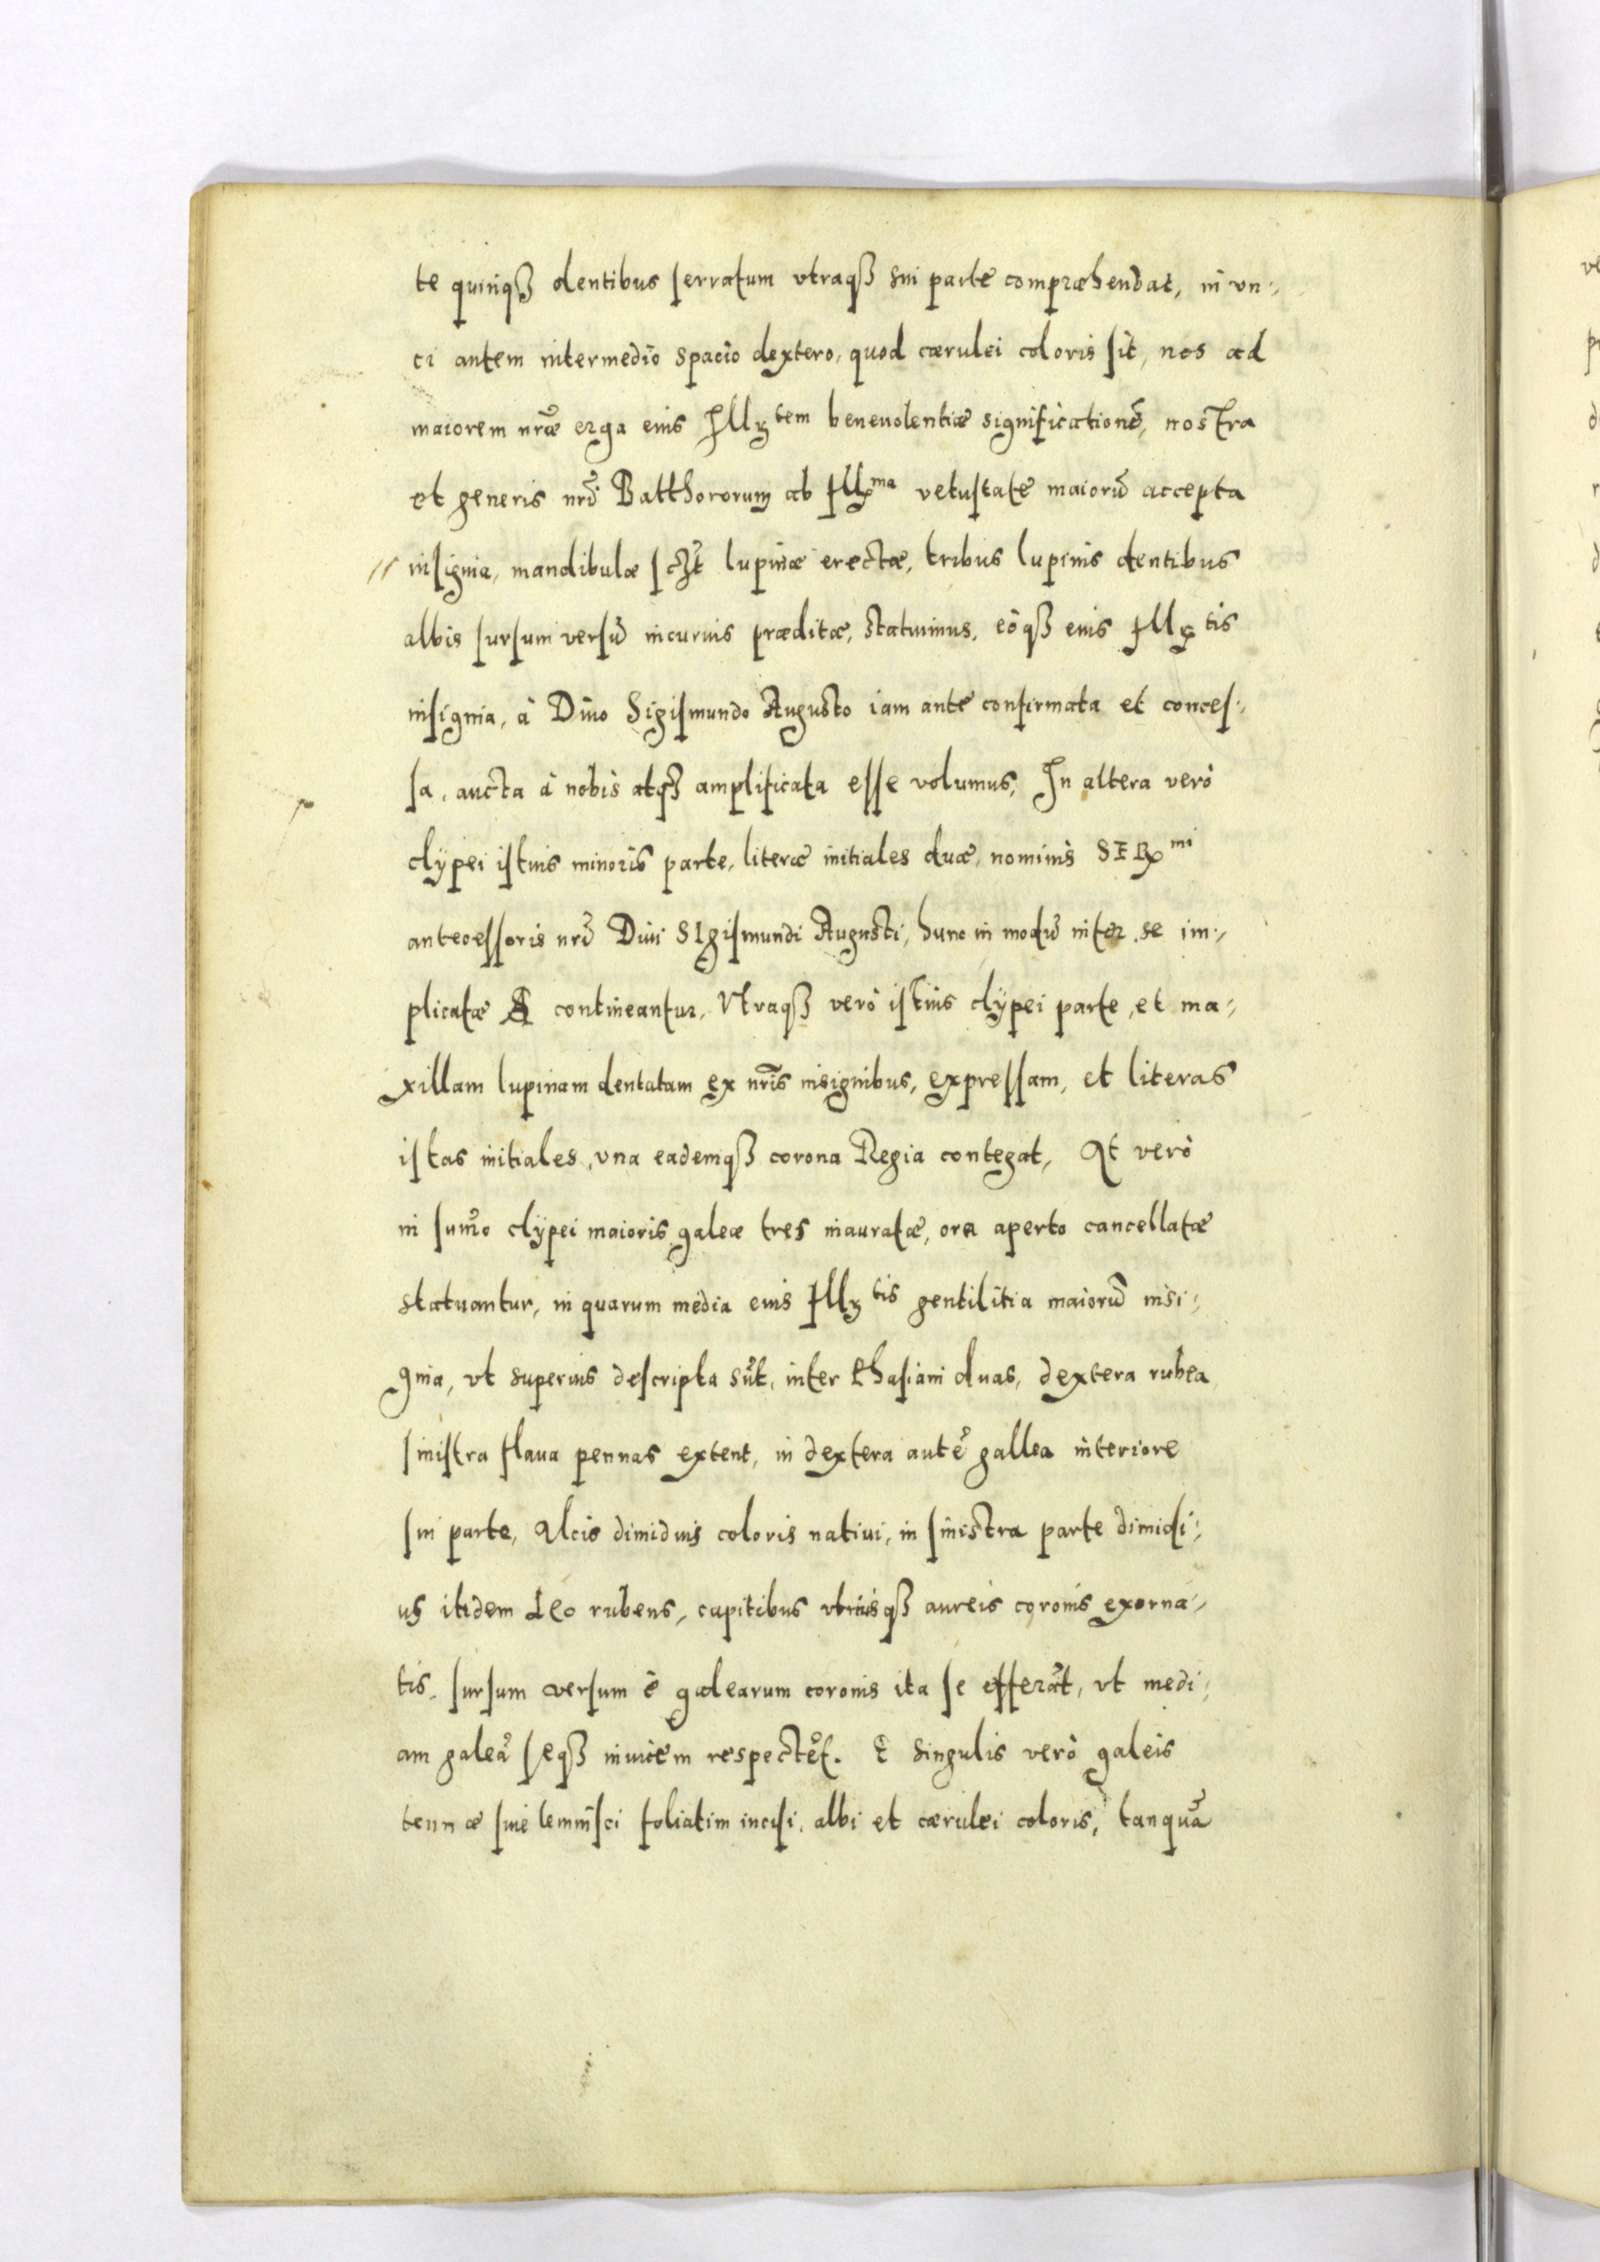 te quinqꝫ dentibus serratum vtraqꝫ sui parte compræhendat, in vn⸗
ci autem intermedio spacio dextero, quod cærulei coloris sit, nos ad
maiorem nr̃æ erga eius Illꝫtem beneuolentiæ significationẽ, nostra
et generis nrĩ Batthororum ab Illma vetustate maiorũ accepta
insignia, mandibulæ sczt lupinæ erectæ, tribus lupinis dentibus
albis sursum versũ incuruis præditæ, statuimus, eòqꝫ eius Illꝫtis
insignia, à Diuo Sigismundo Augusto iam ante confirmata et conces⸗
sa, aucta à nobis atqꝫ amplificata esse volumus. In altera verò
clÿpei istius minoris parte, literæ initiales duæ, nominis SERmi
antecessoris nrĩ Diui SIgismundi Augusti, hunc in modũ inter se im⸗
plicatæ SA contineantur. Vtraqꝫ verò istius clÿpei parte, et ma⸗
xillam lupinam dentatam ex nrĩs insignibus, expressam, et literas
istas initiales, vna eademqꝫ corona Regia contegat, At verò
in sum̃o clÿpei maioris galeæ tres inauratæ, ore aperto cancellatæ
statuantur, in quarum media eius Illꝫtis gentilitia maiorũ insi⸗
gnia, vt superius descripta sũt, inter Phasiani duas, dextera rubea
sinistra flaua pennas extent, in dextera autẽ gallea interiore
sui parte, Alcis dimidius coloris natiui, in sinistra parte dimidi⸗
us itidem Leo rubens, capitibus vtriusqꝫ aureis coronis exorna⸗
tis, sursum versum è galearum coronis ita se efferãt, vt medi⸗
am galeã seqꝫ inuicem respectẽt. E singulis verò galeis
tenuæ siue lemnisci foliatim incisi, albi et cærulei coloris, tanquã